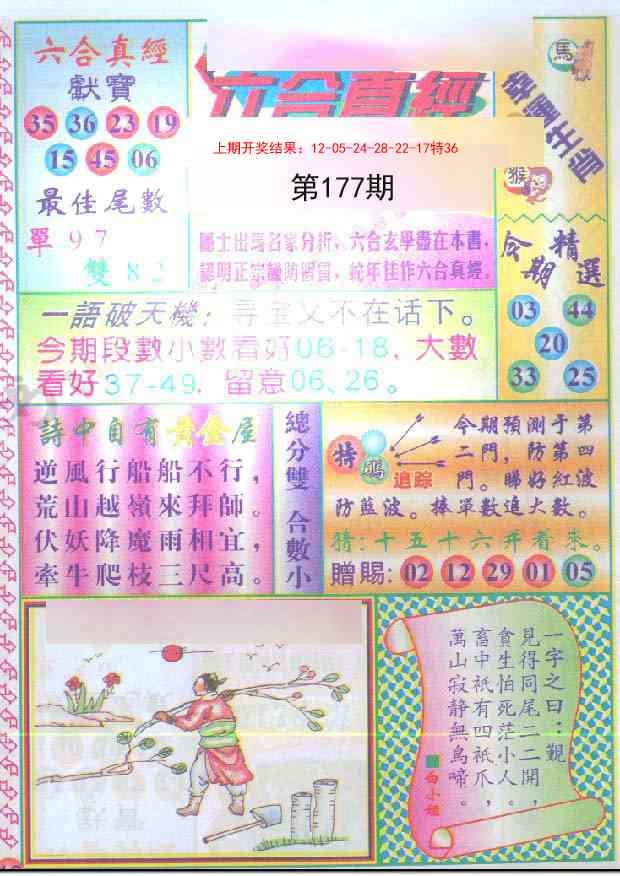 六合真經
獻寶
35 36 23 19
15 45 06
最佳尾數
單97
雙82
六合真經
上期开奖结果：12-05-24-28-22-17特36
第177期
隱士出馬名家分析，六合玄學盡在本書，
認明正宗謹防假冒，蛇年佳作六合真經。
馬
猴
今期精選
03 44
20
33 25
一語破天機：寻宝又不在话下。
今期段數小數看好06-18，大數
看好37-49，留意06、26。
詩中自有黄金屋
逆風行船船不行，
荒山越嶺來拜師。
伏妖降魔雨相宜，
牽牛爬枝三尺高。
總分雙
合數小
特
碼
追踪
今期預測于第
二門，防第四
門。睇好紅波
防藍波。捧單數追大數。
猜：十五十六开看來。
贈賜：02 12 29 01 05
一字之曰：觀
見得同尾二二開，
貪生怕死茫小人，
畜中祇有四祇爪，
萬山寂静無鳥啼。
白小姐